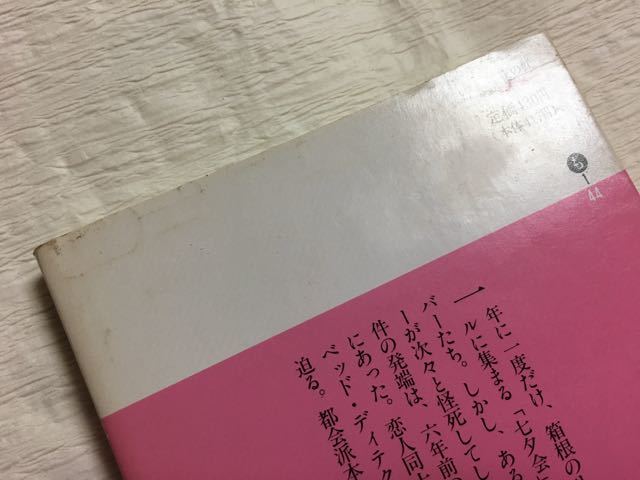 定価430円
本体417円
ち
1
44
一年に一度だけ、箱根の
ルに集まる「七夕会
バーたち。しかし、ある
ーが次々と怪死してし
件の発端は、六年前の
にあった。恋人同士
ベッド・ディテク
迫る。都会派本